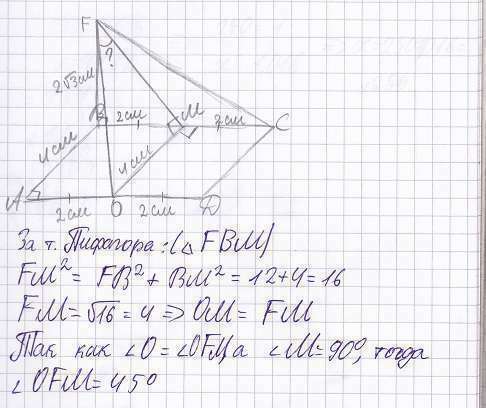 F
?
2√3см
B
2см
M
2см
C
4см
4см
A
2см
O
2см
D
За т. Пифагора: (△ FBM)
FM² = FB² + BM² = 12+4 = 16
FM = √16 = 4 ⇒ OM = FM
Так как ∠O = ∠OFM, а ∠M = 90°, тогда
∠OFM = 45°